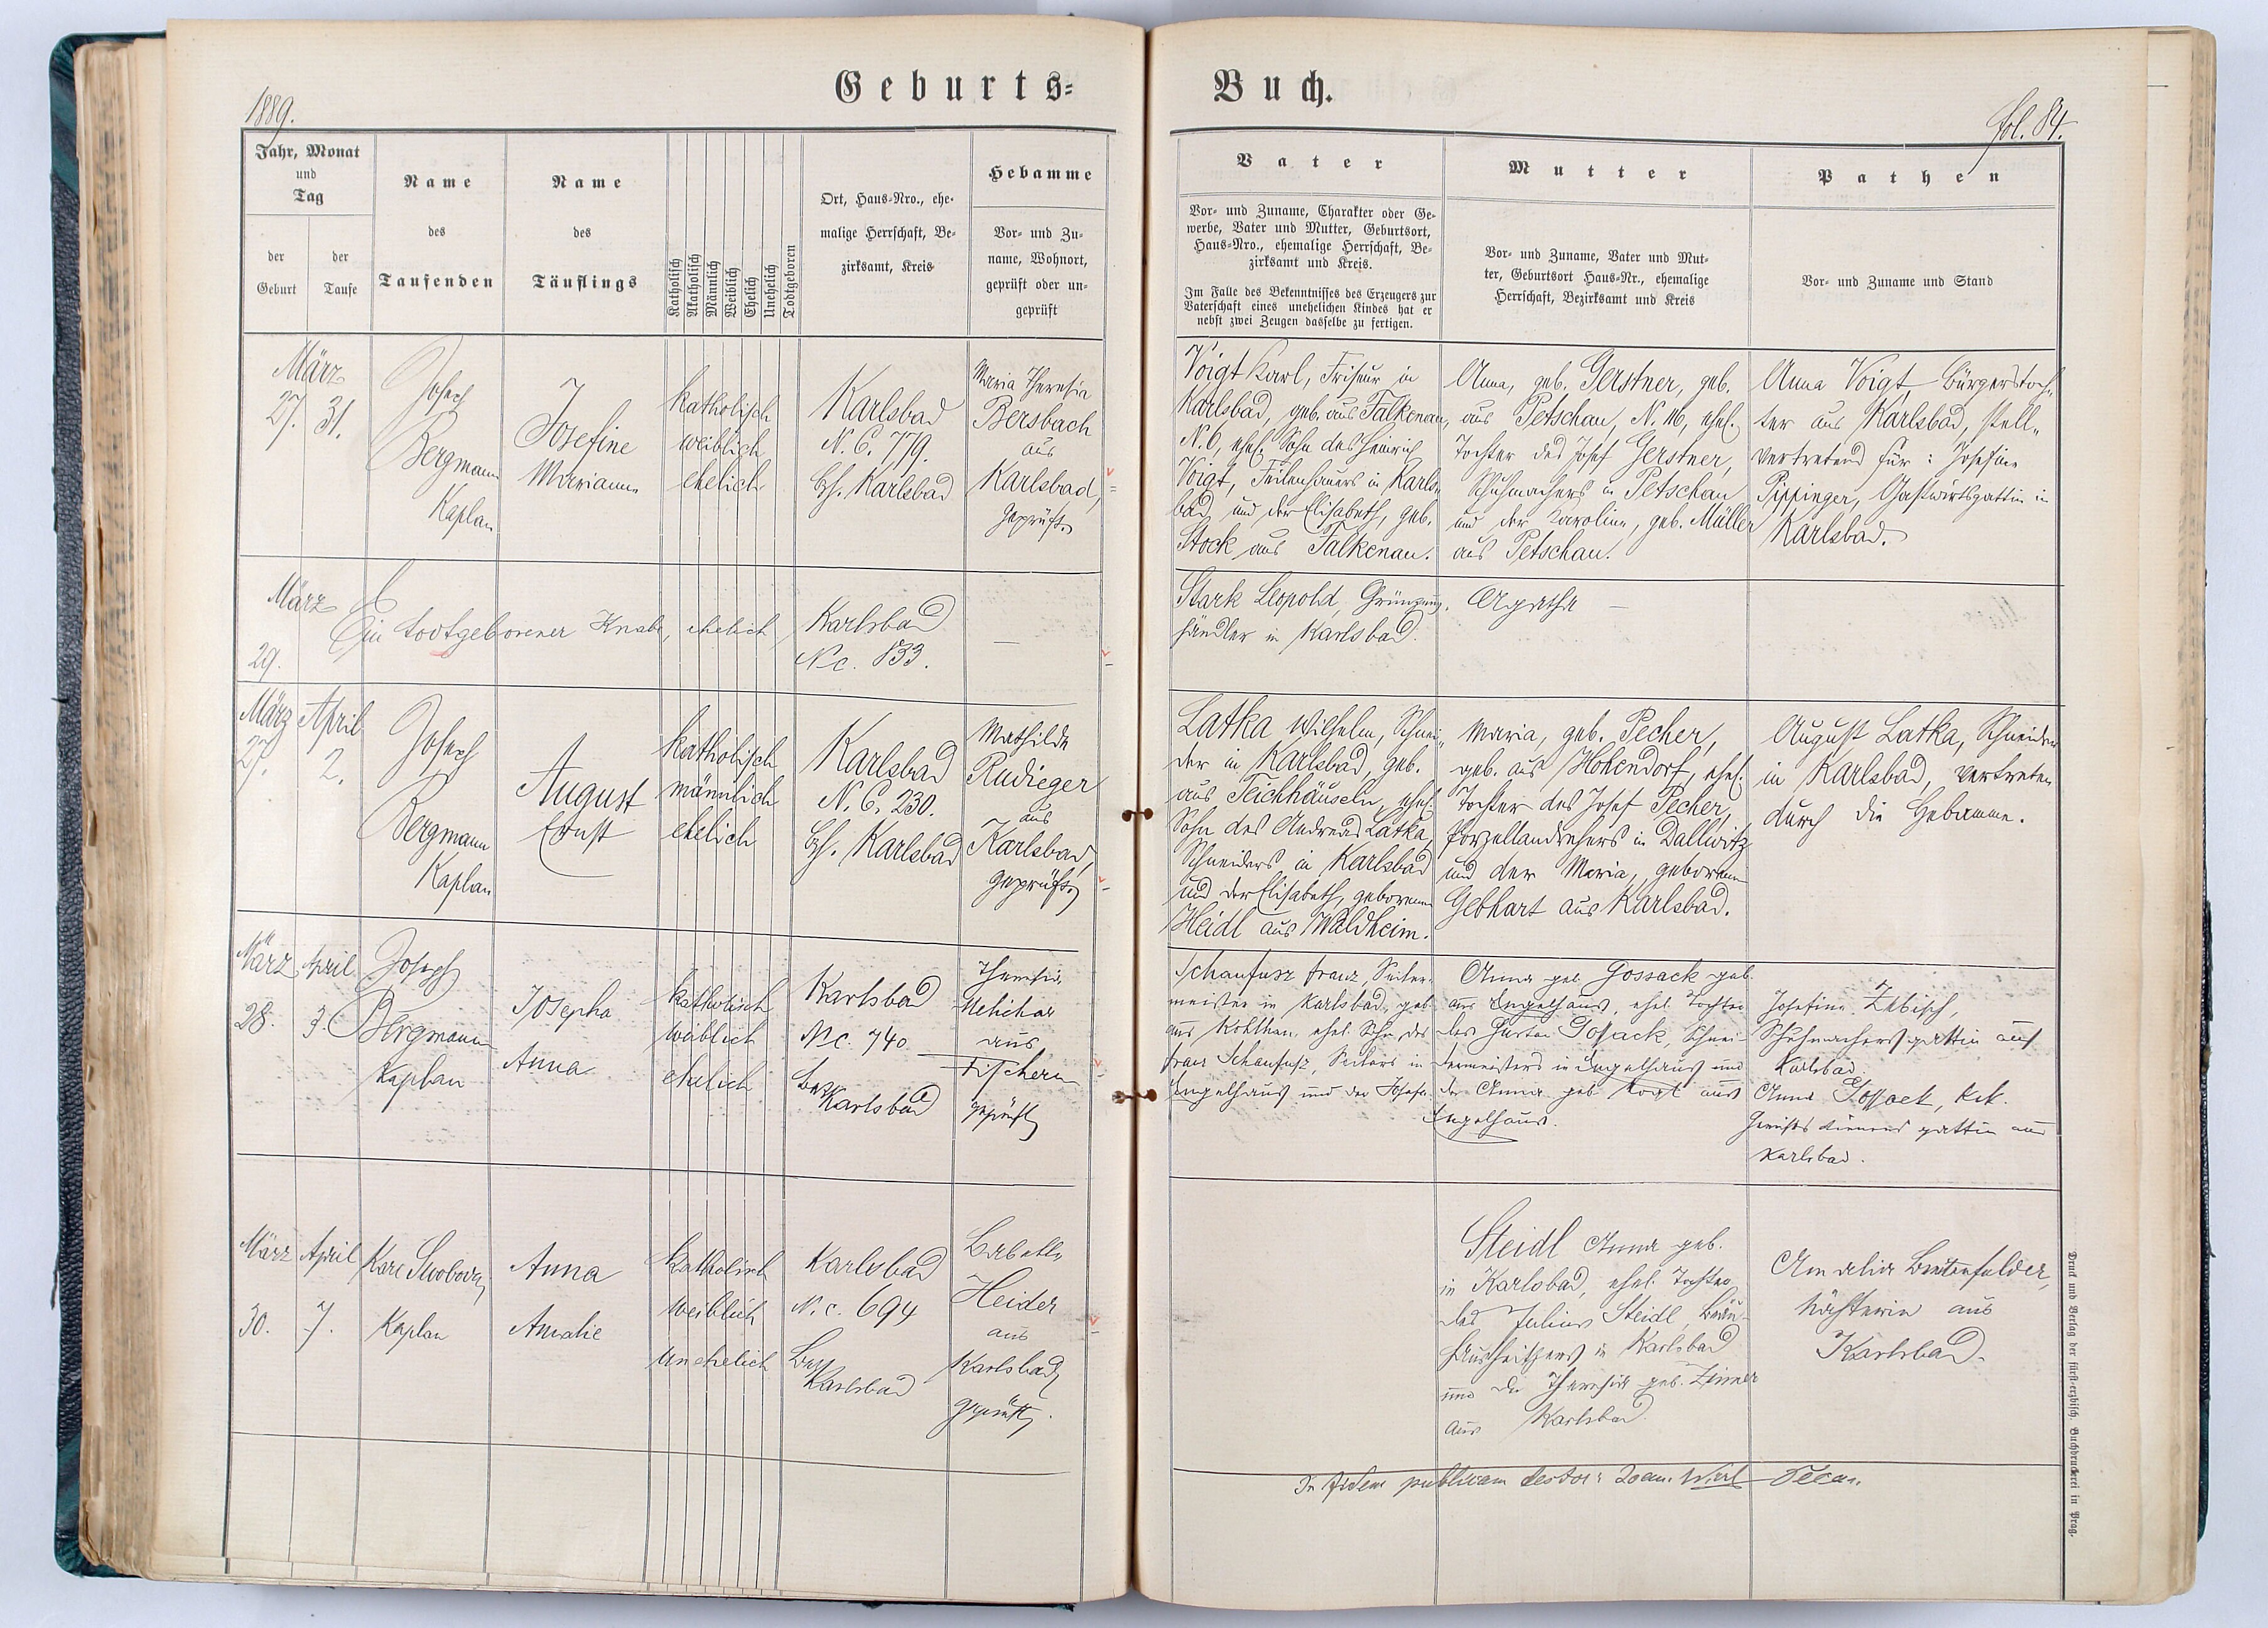 Geburts-
Buch.
1889.
fol. 84.
Jahr, Monat
und
Tag
der
Geburt
der
Taufe
Name
des
Taufenden
Name
des
Täuflings
Katholisch
Akatholisch
Männlich
Weiblich
Ehelich
Unehelich
Todtgeboren
Ort, Haus-Nro., ehe-
malige Herrschaft, Be-
zirksamt, Kreis
Hebamme
Vor- und Zu-
name, Wohnort,
geprüft oder un-
geprüft
Vater
Vor- und Zuname, Charakter oder Ge-
werbe, Vater und Mutter, Geburtsort,
Haus-Nro., ehemalige Herrschaft, Be-
zirksamt und Kreis.
Im Falle des Bekenntnisses des Erzeugers zur
Vaterschaft eines unehelichen Kindes hat er
nebst zwei Zeugen dasselbe zu fertigen.
Mutter
Vor- und Zuname, Vater und Mut-
ter, Geburtsort Haus-Nr., ehemalige
Herrschaft, Bezirksamt und Kreis
Pathen
Vor- und Zuname und Stand
März
27. 31.
Josef
Bergmann
Kaplan
Josefine
Marianne
katholisch
weiblich
ehelich
Karlsbad
N. C. 779.
Bh. Karlsbad
Maria Theresia
Bersbach
aus
Karlsbad,
geprüft.
Voigt Karl, Friseur in
Karlsbad, geb. aus Falkenau,
N. 6, ehel. Sohn des Heinrich
Voigt, Feilenhauers in Karls-
bad, und der Elisabeth, geb.
Stock aus Falkenau.
Anna, geb. Gerstner, geb.
aus Petschau, N. 116, ehel.
Tochter des Josef Gerstner,
Schuhmachers in Petschau
und der Karoline, geb. Müller
aus Petschau.
Anna Voigt, Bürgerstoch-
ter aus Karlsbad, stell-
vertretend für: Josefine
Pippinger, Gastwirtsgattin in
Karlsbad.
März
29.
Ein todtgeborener Knabe, ehelich,
Karlsbad
Nc. 833.
—
Stark Leopold,
händler in Karlsbad.
Agatha —
März
27.
April
2.
Josef
Bergmann
Kaplan
August
Ernst
katholisch
männlich
ehelich
Karlsbad
N. C. 230.
Bh. Karlsbad
Mathilde
Rudieger
aus
Karlsbad,
geprüft.
Latka Wilhelm, Schnei-
der in Karlsbad, geb.
aus Teichhäuseln, ehel.
Sohn des Andreas Latka,
Schneiders in Karlsbad
und der Elisabeth, geborenen
Heidl aus Waldheim.
Maria, geb. Pecher,
geb. aus Hohendorf, ehel.
Tochter des Josef Pecher,
Porzellandrehers in Dallwitz
und der Maria, geborenen
Gebhart aus Karlsbad.
August Latka, Schneider
in Karlsbad, vertreten
durch die Hebamme.
März
28.
April
3.
Joseph
Bergmann
Kaplan
Josepha
Anna
katholisch
weiblich
ehelich
Karlsbad
Nc. 740
Bez.
Karlsbad
Theresia
Melichar
aus
Fischern
geprüft
Schaufusz Franz, Seiler-
meister in Karlsbad, geb.
aus Kohlhau, ehel. Sohn des
Franz Schaufusz, Seilers in
Engelhaus und der Josefa
Anna geb. Gossack geb.
aus Engelhaus, ehel. Tochter
des Gossack, Schnei-
dermeisters in Engelhaus und
der Anna geb. aus
Engelhaus.
Josefine Zebisch,
Schuhmachersgattin aus
Karlsbad.
Anna Gossack, k.k.
Gerichtsdienersgattin aus
Karlsbad.
März
30.
April
7.
Karl Swoboda,
Kaplan
Anna
Amalie
Katholisch
weiblich
unehelich
Karlsbad
N. c. 694
Bez.
Karlsbad
Babette
Heider
aus
Karlsbad,
geprüft.
Steidl Anna geb.
in Karlsbad, ehel. Tochter
des Julius Steidl,
in Karlsbad
und der Theresia geb. Zinner
aus Karlsbad
Amalia Breitenfelder,
Nähterin aus
Karlsbad.
In fidem publicam testor: Joan. Decan.
Druck und Verlag der fürst-erzbisch. Buchdruckerei in Prag.